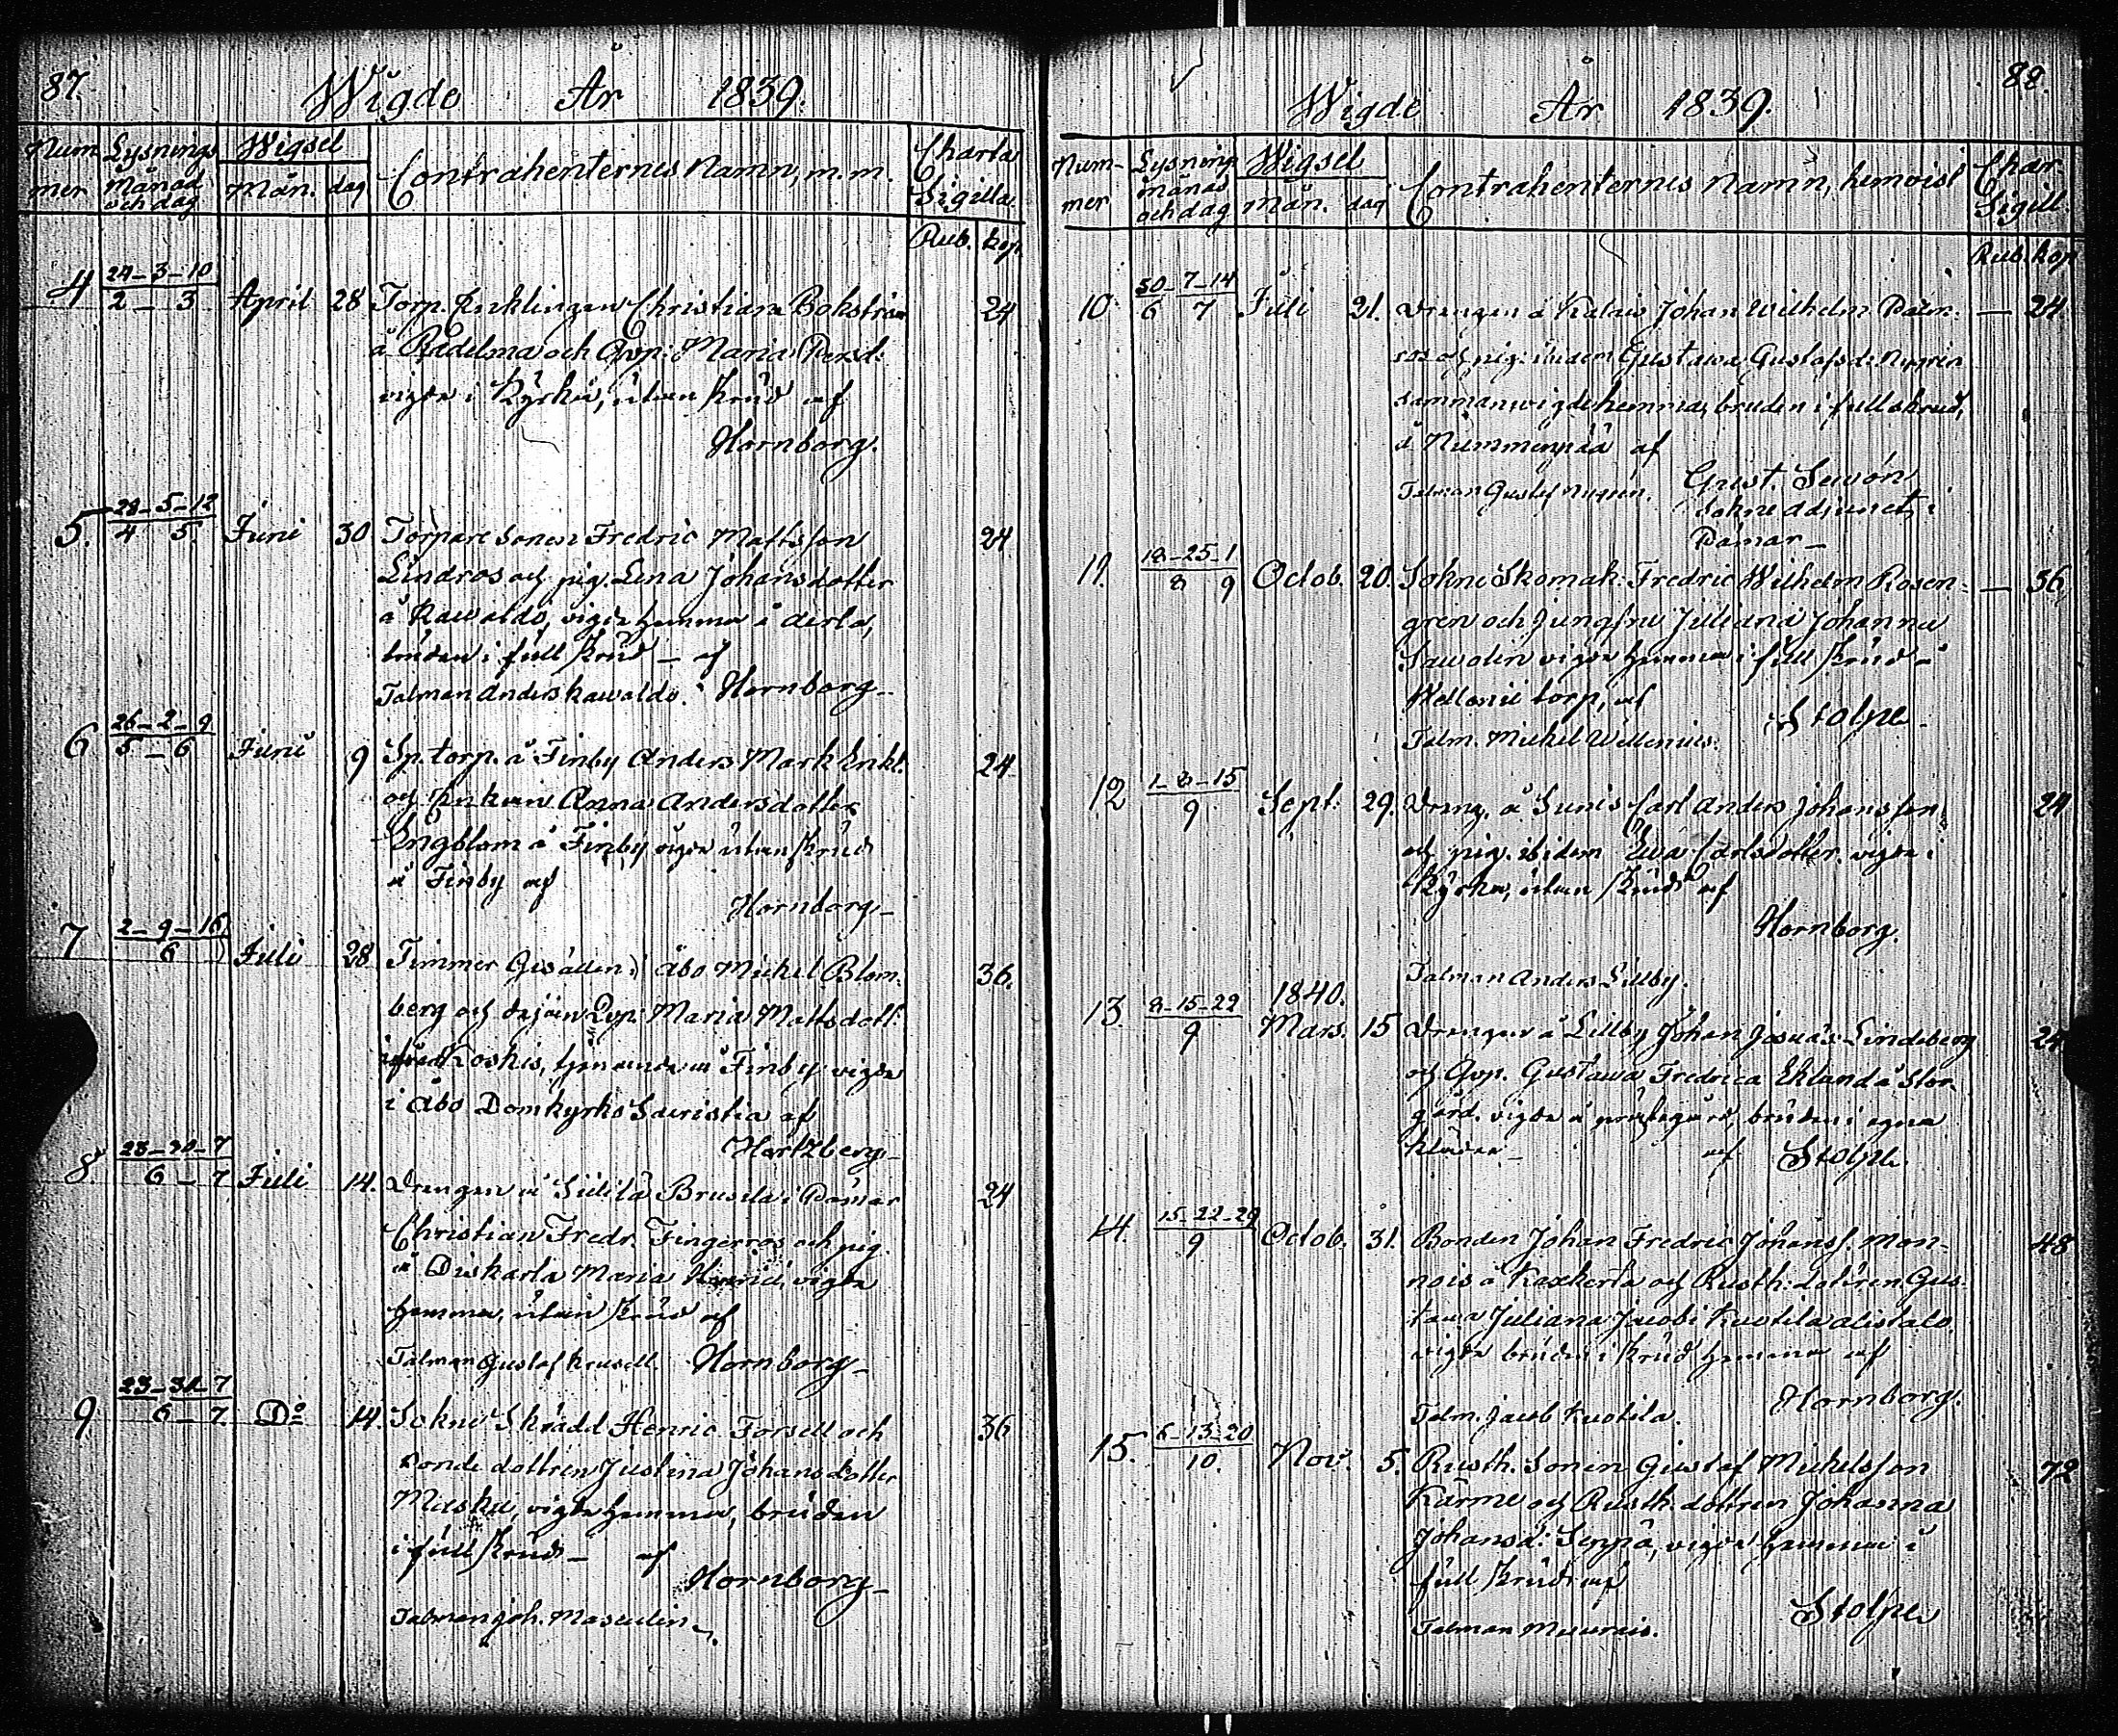 87.
Wigde År 1839.
Num mer
Lysnings månad och dag
Wigsel
Mån. dag
Contrahenternes Namn, m. m.
Charta Sigilla.
Rub. kop.
4 24-3-10 / 2-3 April 28 Torp. Enklingen Christian Bokström 24
å Rädelma och Qvp: Maria Persd:
vigde i Kyrka, utan skrud af
Hornborg.
5. 28-5-12 / 4 5. Juni 30 Torpare Sonen Fredric Mattsson 24
Lindros och pig. Lena Johansdotter
å Kawaldo, vigde hemma å
bruden i full skrud – af
Talman Anders Kawaldo. Hornborg –
6 26-2-9 / 5-6 Juni 9 Sp. torp. å Finby Anders Mark Enkl. 24
och Enkan Anna Andersdotter
Engblom å Finby vigde utan skrud
å Finby af
Hornborg –
7 2-9-16 / 6 Juli 28 Timmer Gesällen i Åbo Michel Blom- 36.
berg och Qvp: Maria Mattsdott:
ifrån Koskis, tjenande å Finby vigde
i Åbo Domkyrko Sacristia af
Hertzberg –
8 23-30-7 / 6-7 Juli 14. Drengen å Brusila i Pämar 24
Christian Fredr. Fingerroos och pig.
å Diskarla Maria vigde
hemma, utan skrud af
Talman Gustaf Krusell Hornborg –
9. 23-30-7 / 6-7. Do 14. Sokne Skrädd Henric Forsell och 36
Bonde dottren Justina Johansdotter
Masku, vigde hemma, bruden
i full skrud – af
Hornborg –
Talman Joh. Masculin
88.
Wigde År 1839.
Num- mer
Lysning månad och dag
Wigsel
Mån. dag
Contrahenternes Namn, hemvist
Char. Sigill.
Rub. kop
10. 30-7-14 / 6 7 Juli 21. Drengen å Kalais Johan Wilhelm Palm- – 24
ros och pig. ibidem Gustawa Gustafsd: Nygren
sammanvigde hemma, bruden i full skrud,
å Nummenpää af
Talman Gustaf Nygrén. Gust. Savón
Sokne adjunct i
Pämar –
11. 18-25-1 / 8 9 Octob. 20. Sokne Skomak. Fredric Wilhelm Rosen- – 36
gren och jungfru Juliana Johanna
vigde hemma i full skrud å
torp, af
Stolpe –
Talm. Michel Wellenius.
12 1-8-15 / 9. Sept: 29. Dreng. å Sunis Carl Anders Johansson 24
och pig. ibidem Ewa Carlsdotter vigde i
Kyrka, utan skrud af
Hornborg.
Talman Anders Lillby.
13. 8-15-22 / 9 1840. Mars. 15 Drengen å Lillby Johan Josuas: Lindeberg 24
och Qvp. Gustawa Fredrica Eklund å Stor-
gård. vigde å prestegård, bruden i egna
kläder – af Stolpe.
14. 15-22-29 / 9 Octob. 31. Bonden Johan Fredric Johanss. Mon- 48
nois å Kaxkerta och Rusth: Dottren Gus-
tava Juliana Jacobi Kuotila alistalo
vigde bruden i skrud hemma af
Hornborg.
Talm. Jacob Kuotila.
15. 6-13-20 / 10. Nov. 5. Rusth. Sonen Gustaf Michelsson 72
Kurme och Rusth. dottren Johanna
Johansd: Seppä, vigde hemma i
full skrud af
Stolpe
Talman